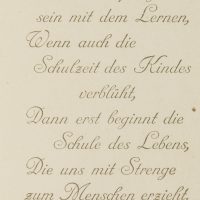 sein mit dem Lernen,
Wenn auch die
Schulzeit des Kindes
verblüht,
Dann erst beginnt die
Schule des Lebens,
Die uns mit Strenge
zum Menschen erzieht.